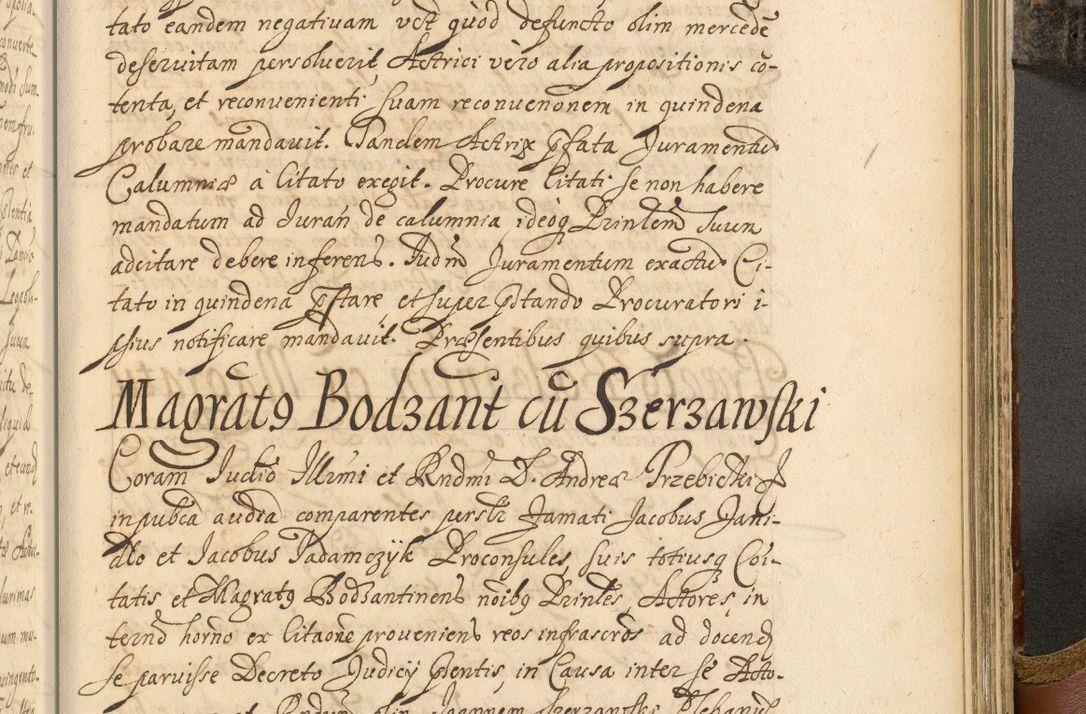 tato eandem negativam vel quod defuncto olim mercede
deservitam persolverit, Actrici vero alia propositionis co-
tenta, et reconvenienti suam reconvenonem in quindena
probare mandavit. Tandem Actrix pfata Juramentu
Calumniæ a Citato exegit. Procure Citati se non habere
mandatum ad Juran de calumnia ideoq Prinlem suun
adcitare debere inferens. Judm Juramentum exactu Ci-
tato in quindena pstare, et super pstando Procuratori i-
psius notificare mandavit. Præsentibus quibus supra.
Magrat9 Bodzant cu Szerzawski
Coram Judio Illmi et Rndmi D. Andreæ Przebicki
in pubca audia comparentes perslr Famati Jacobus Jani-
dlo et Jacobus Padamczyk Proconsules, suis totiusq Coi-
tatis et Magrat9 Bodzantinens noib9 Prinles, Actores, in
termo horno ex Citaone proveniens reos infrascros ad docend
se paruisse Decreto Judicij pntis, in Causa inter se Acto-
et Rndum olim Joannem Szerzawski Plebanu